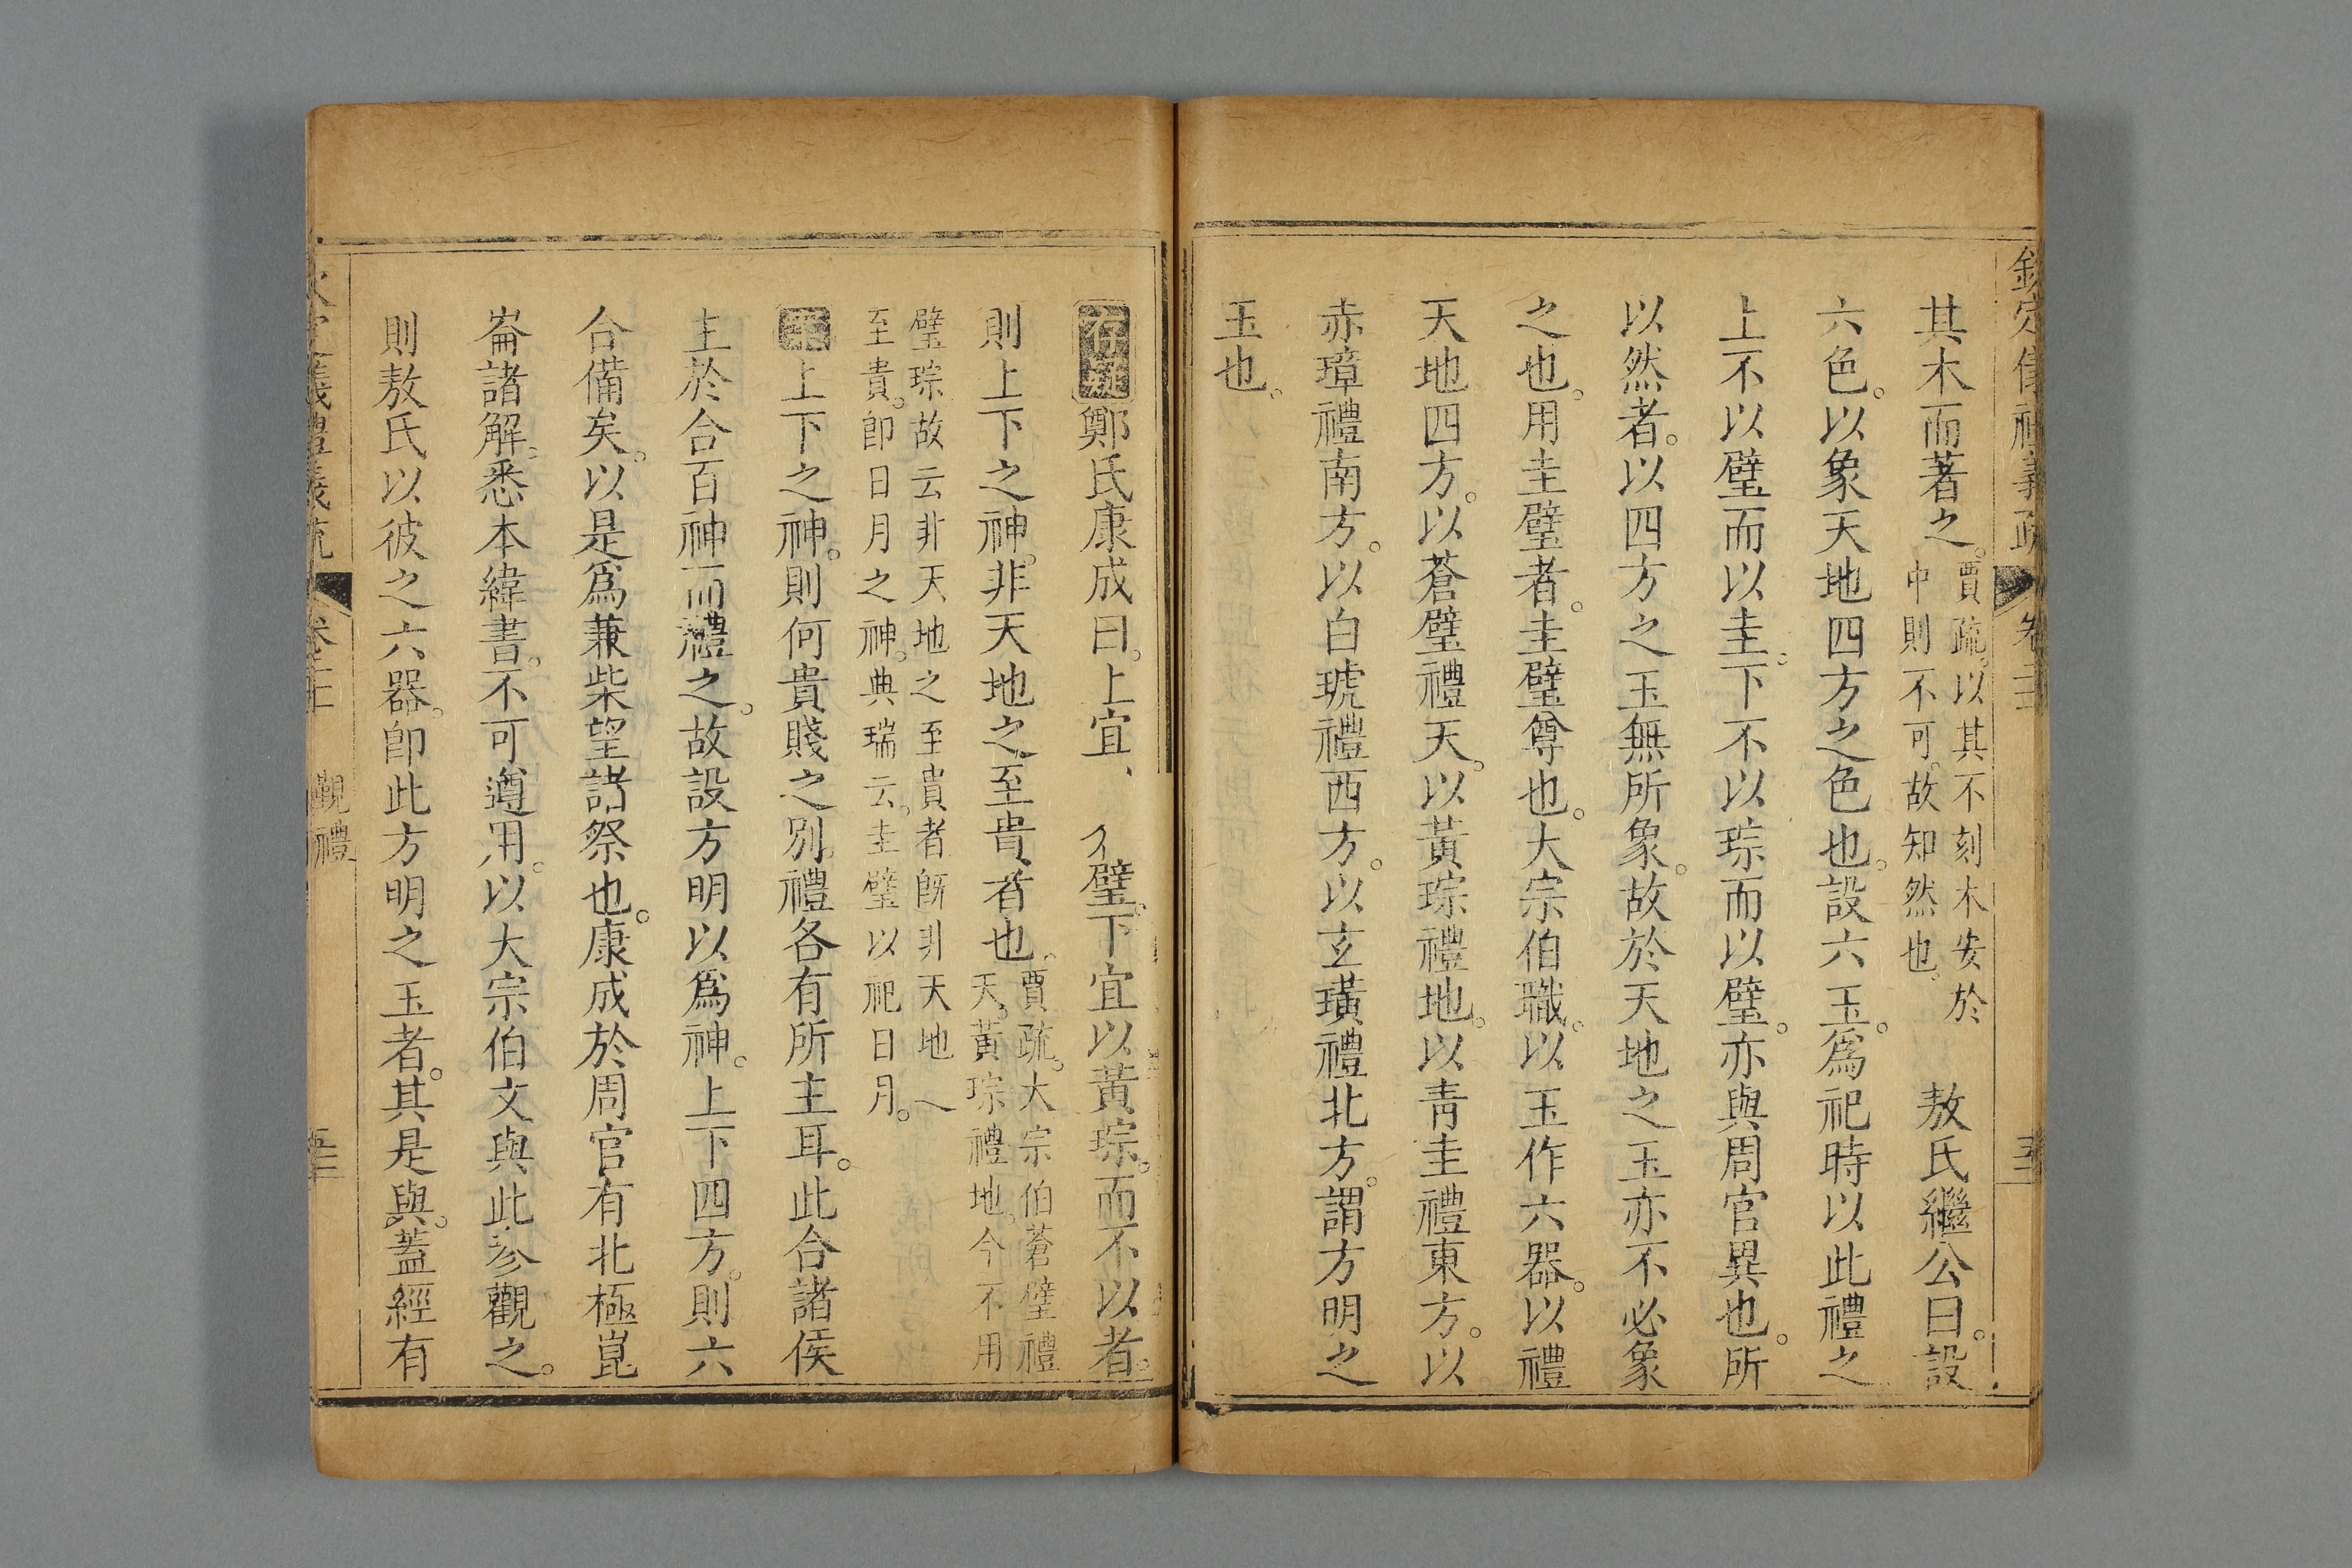 其木而著之。賈疏。以其不刻木安於
中則不可。故知然也。敖氏繼公曰。設
六色。以象天地四方之色也。設六玉。爲祀時以此禮之
上不以璧而以圭。下不以琮而以璧。亦與周官異也。所
以然者。以四方之玉無所象。故於天地之玉亦不必象
之也。用圭璧者。圭璧尊也。大宗伯職。以玉作六器。以禮
天地四方。以蒼璧禮天。以黃琮禮地。以青圭禮東方。以
赤璋禮南方。以白琥禮西方。以玄璜禮北方。謂方明之
玉也。
鄭氏康成曰。上宜璧。下宜以黃琮。而不以者。
則上下之神。非天地之至貴者也。賈疏。大宗伯蒼璧禮
天。黃琮禮地。今不用
璧琮故云非天地之至貴者旣非天地
至貴。卽日月之神。典瑞云。圭璧以祀日月。
上下之神。則何貴賤之別。禮各有所主耳。此合諸侯
主於合百神而禮之。故設方明以爲神。上下四方。則六
合備矣。以是爲兼柴望諸祭也。康成於周官有北極崑
崙諸解。悉本緯書。不可遵用。以大宗伯文與此參觀之。
則敖氏以彼之六器。卽此方明之玉者。其是與。蓋經有
覲禮